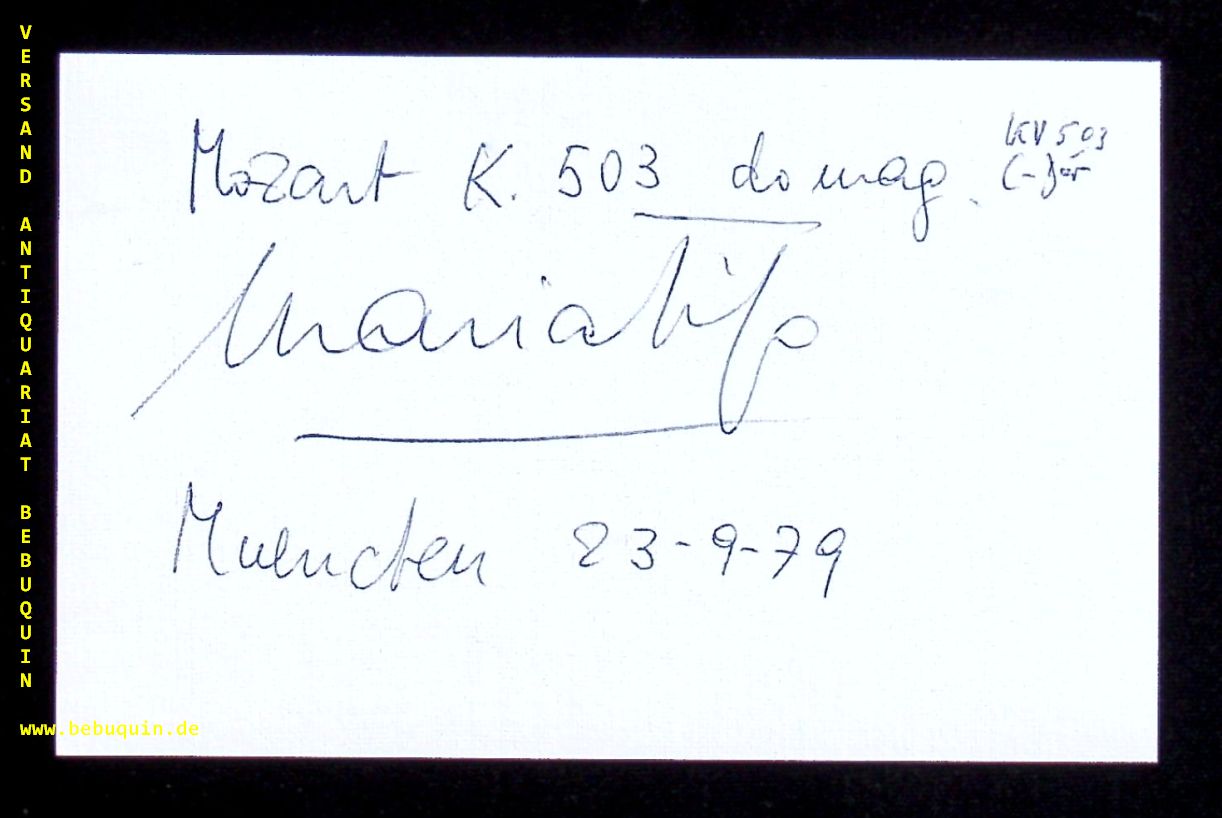 VERSAND ANTIQUARIAT BEBUQUIN
Mozart K. 503 do mag.
KV 503
(-Dur
Maria Tipo
Muenchen 23-9-79
www.bebuquin.de